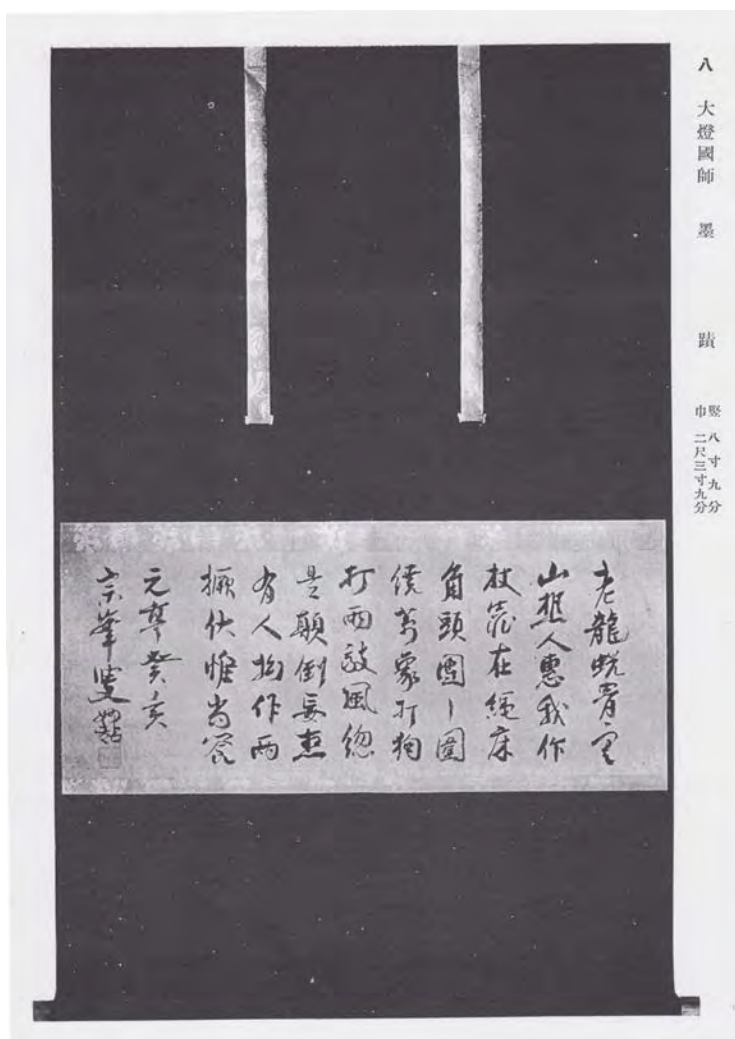 八 大燈國師 墨 蹟
竪八寸九分
巾二尺三寸九分
老龍蛻骨
山樵人惠我作
杖靠在繩床
角頭團々圍
繞萬象打狗
打雨敲風總
是顛倒妄想
有人拗作兩
橛伏惟尚饗
元亨癸亥
宗峯叟